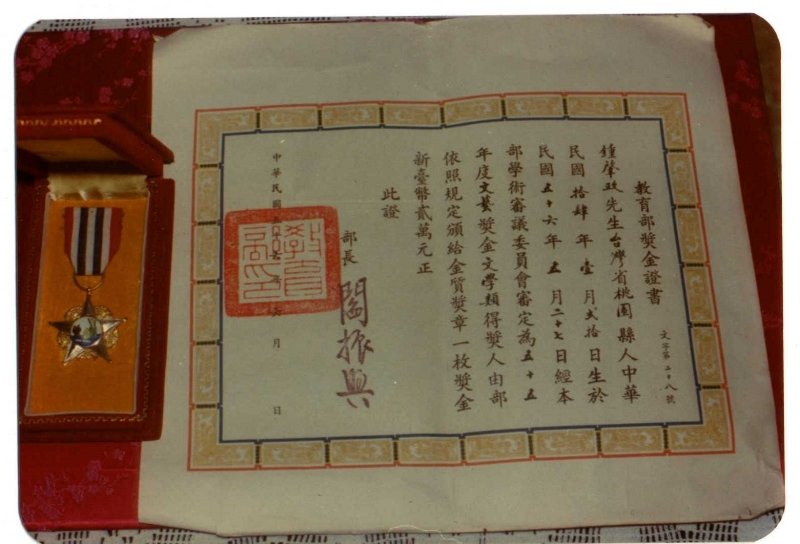 教育部獎金證書
文字第二十八號
鍾肇政先生台灣省桃園縣人中華
民國拾肆年壹月貳拾日生於
民國五十六年五月二十七日經本
部學術審議委員會審定為五十五
年度文藝獎金文學類得獎人由部
依照規定頒給金質獎章一枚獎金
新臺幣貳萬元正
此證
部長 閻振興
中華民國五十六年六月 日